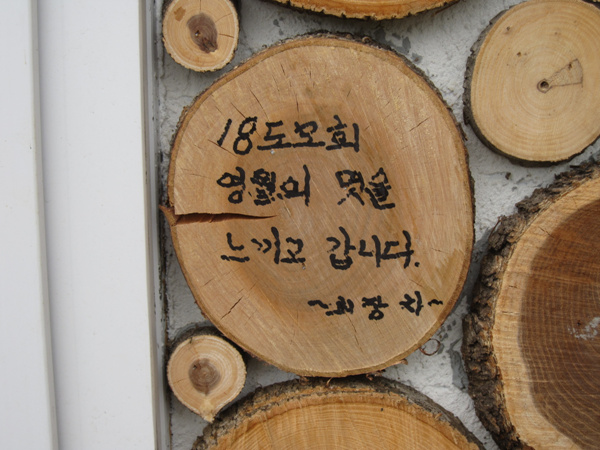 18도모회
영월의 멋을
느끼고 갑니다.